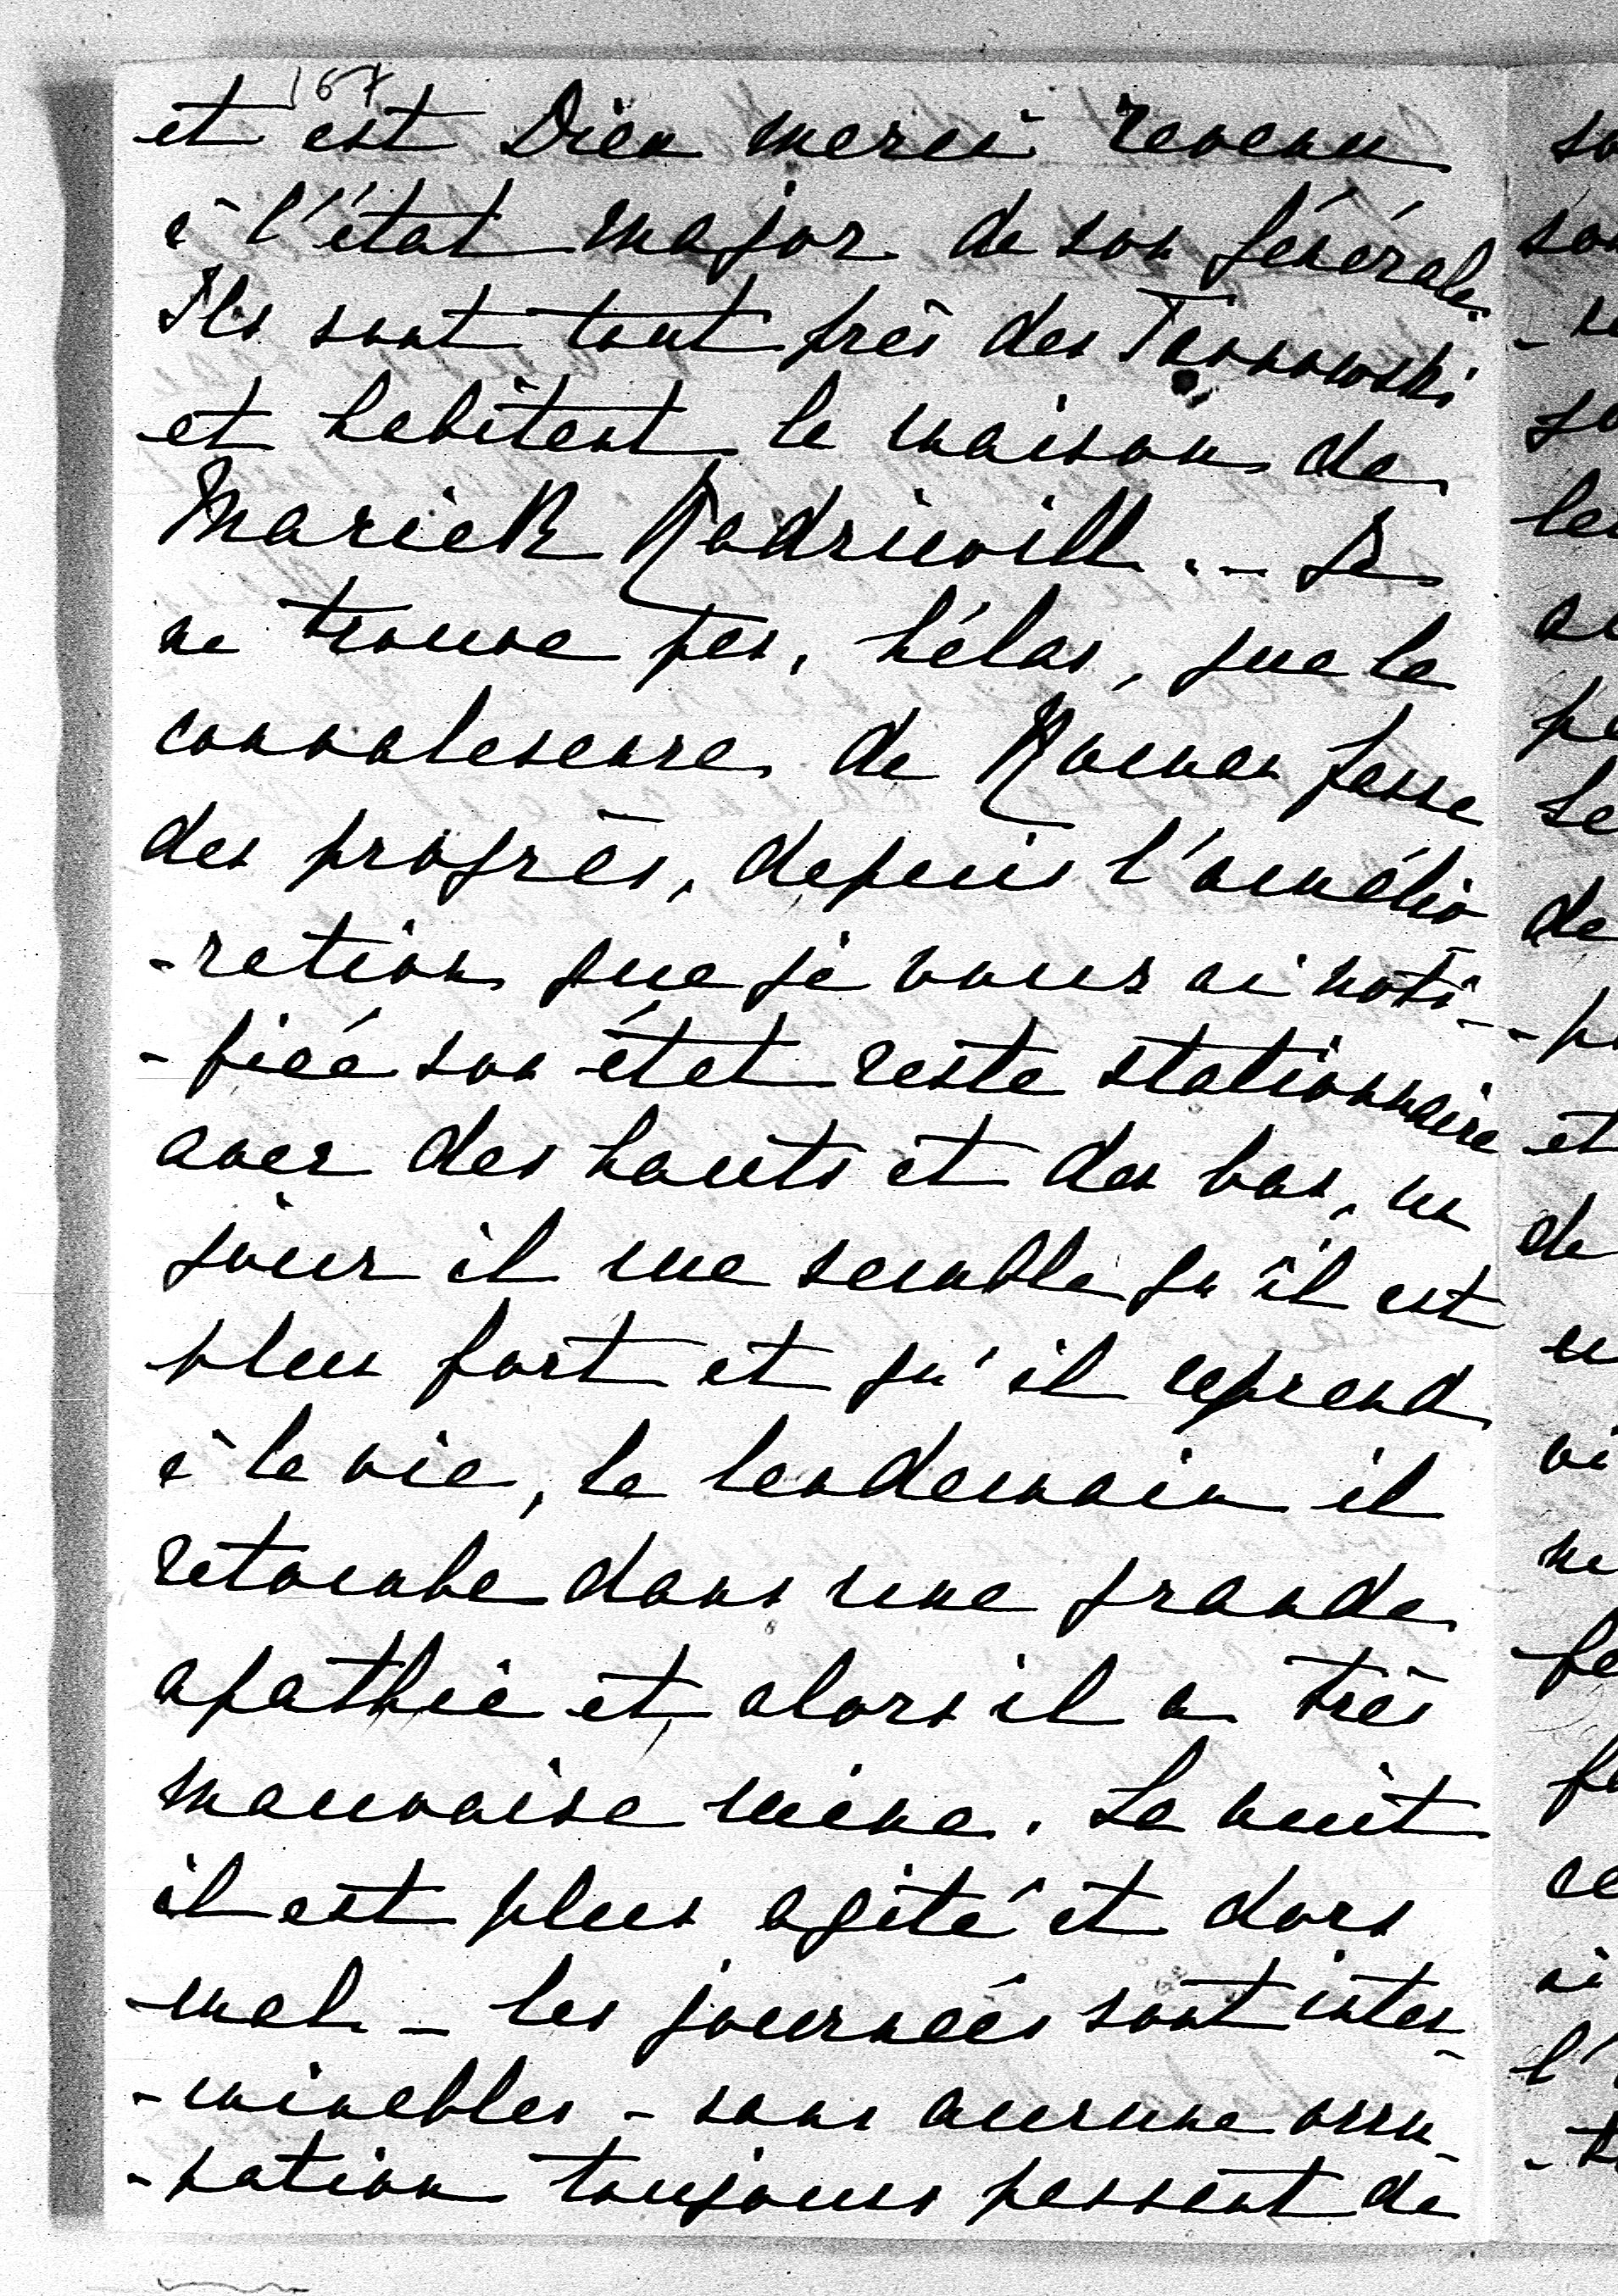 167
et est Dieu merci revenu
à l'état major de son général.
Ils sont tout près des Tarnowski
et habitent la maison de
Mariek Radziwill. - Je
ne trouve pas, hélas, que la
convalescence de Roman fasse
des progrès, depuis l'amélio
-ration que je vous ai noti-
-fiée son état reste stationnaire
avec des hauts et des bas, un
jour il me semble qu'il est
plus fort et qu'il reprend
à la vie, le lendemain il
retombe dans une grande
apathie et alors il a très
mauvaise mine. La nuit
il est plus agité et dors
mal - les journées sont inter-
-minables - sans aucune occu-
-pation toujours passant de